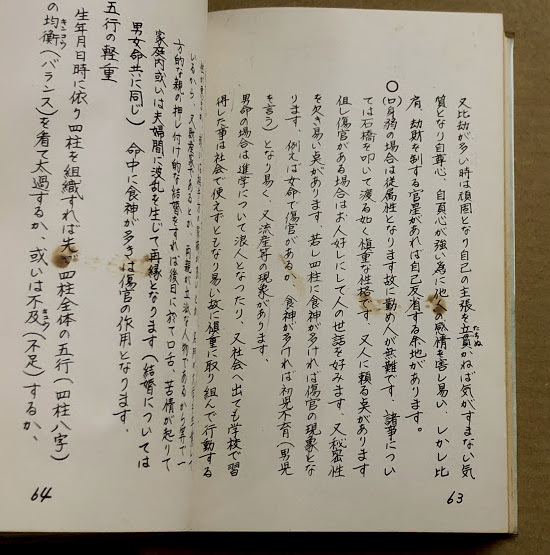 又比劫が多い時は頑固となり自己の主張を立貫かねば気がすまない気
たちぬ
質となり自尊心、自負心が強い為に他人の感情を害し易い、しかし比
肩、劫財を制する官星があれば自己反省する余地があります。
○
(ロ)身弱の場合は従属性となります故に勤め人が無難です、諸事につい
ては石橋を叩いて渡る如く慎重な性格です、又人に頼る矣があります
但し傷官がある場合はお人好しにして人の世話を好みます、又秘密性
を欠き易い矣があります、若し四柱に食神が多ければ傷官の現象とな
ります、例えば女命で傷官があるか、食神が多ければ初児不育(男児
を言う)となり易く、又流産等の現象があります。
男命の場合は進学について浪人となったり、又社会へ出ても学校で習
得した事は社会で使えずともなり易い故に慎重に取り組んで行動する
63
方的な親の押し付け的な結婚をすれば後日に於て口舌、苦情が起りて
家庭内或いは夫婦間に波乱を生じて再縁となります(結婚については
男女命共に同じ) 命中に食神が多きは傷官の作用となります。
五行の軽重
生年月日時に依り四柱を組織すれば先ず四柱全体の五行(四柱八字)
の均衡(バランス)を看て太過するか、或いは不及(不足)するか、
きんこう
きう
64